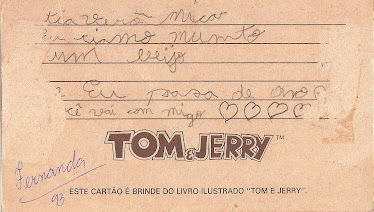 tia verô mica
eu ciamo mumto
um beijo
Eu pasa de ano
cê vai com migo ♡♡♡♡
TOM & JERRY™
Fernanda
93
ESTE CARTÃO É BRINDE DO LIVRO ILUSTRADO "TOM E JERRY".